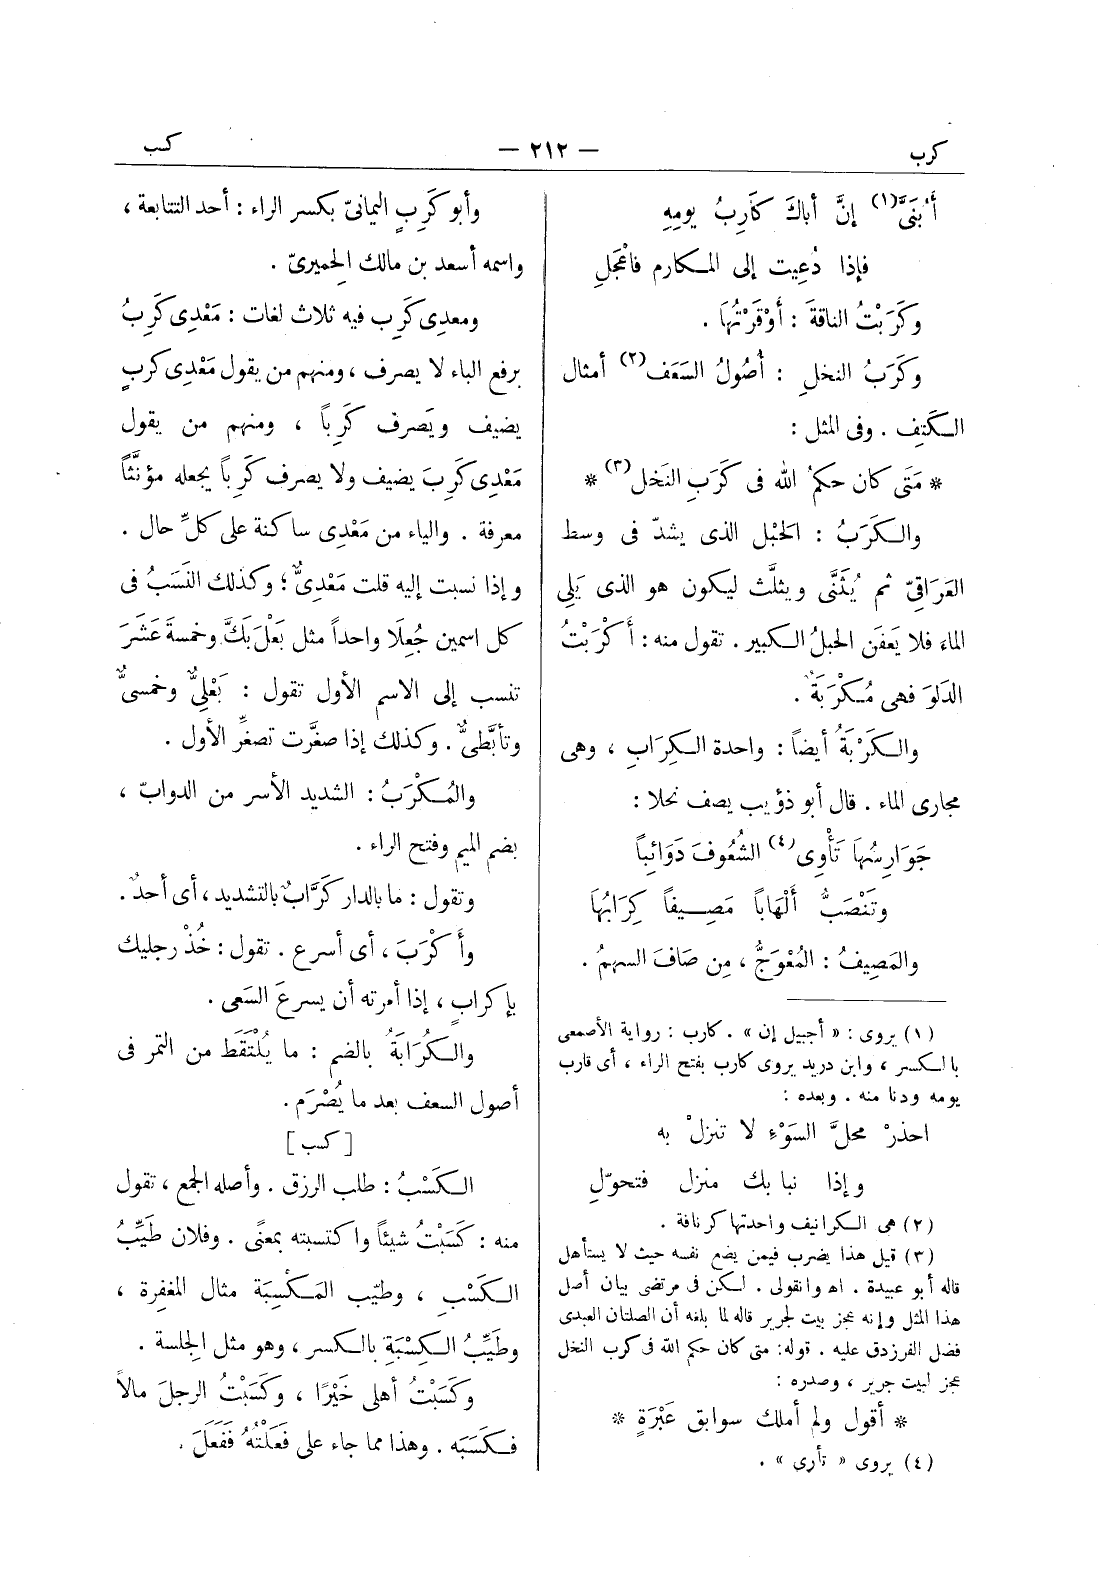 كرب
— ٢١٢ —
كسب
أَبُنَىَّ(١) إنَّ أباكَ كَارِبُ يومِهِ
فإذا دُعِيت إلى المكارم فاعْجَلِ
وكَرَبْتُ الناقةَ : أوْقَرْتُها .
وكَرَبُ النخلِ : أُصُولُ السَعَف(٢) أمثال
الكَتِف . وفى المثل :
* مَتَى كان حكمُ الله فى كَرَبِ النَخلِ(٣) *
والكَرَبُ : الحَبْل الذى يشدّ فى وسط
العَرَاقِىّ ثم يُثَنَّى ويثلَّث ليكون هو الذى يَلِى
الماء فلا يَعفَن الحبلُ الكبير . تقول منه : أَكْرَبْتُ
الدَلوَ فهى مُكْرَبَةٌ .
والكَرْبَةُ أيضاً : واحدة الكِرَابِ ، وهى
مجارى الماء . قال أبو ذؤيب يصف نحلا :
جَوَارِسُها تَأْوِى(٤) الشُعُوفَ دَوَائِباً
وتَنْصَبُّ أَلْهَاباً مَصِيفاً كِرَابُها
والمَصِيفُ : المُعْوَجُّ ، مِن صَافَ السهمُ .
(١) يروى : « أجبيل إن » . كارب : رواية الأصمعى
بالكسر ، وابن دريد يروى كارب بفتح الراء ، أى قارب
يومه ودنا منه . وبعده :
احذرْ محلَّ السَوْءِ لا تنزلْ به
وإذا نبا بك منزل فتحوّلِ
(٢) هى الكرانيف واحدتها كرنافة .
(٣) قيل هذا يضرب فيمن يضع نفسه حيث لا يستأهل
قاله أبو عبيدة . اه وانقولى . لكن فى مرتضى بيان أصل
هذا المثل وإنه عجز بيت لجرير قاله لما بلغه أن الصلتان العبدى
فضل الفرزدق عليه . قوله: متى كان حكم الله فى كرب النخل
عجز لبيت جرير ، وصدره :
* أقول ولم أملك سوابق عَبْرَةٍ *
(٤) يروى « تأرى » .
وأبو كَرِبٍ اليمانىّ بكسر الراء : أحد التتابعة ،
واسمه أسعد بن مالك الحِميرىّ .
ومعدى كَرِب فيه ثلاث لغات : مَعْدِى كَرِبُ
برفع الباء لا يصرف ، ومنهم من يقول مَعْدِى كربٍ
يضيف ويَصرف كَرِباً ، ومنهم من يقول
مَعْدِى كَرِبَ يضيف ولا يصرف كَرِباً يجعله مؤنَّثاً
معرفة . والياء من مَعْدِى ساكنة على كلِّ حال .
وإذا نسبت إليه قلت مَعْدِىٌّ ؛ وكذلك النَسَبُ فى
كل اسمين جُعِلَا واحداً مثل بَعْلَ بَكَّ وخمسةَ عَشَرَ
تنسب إلى الاسم الأول تقول : بَعْلِىٌّ وخمسىٌّ
وتأبَّطىٌّ . وكذلك إذا صغَّرت تصغِّر الأول .
والمُكْرَبُ : الشديد الأسر من الدوابّ ،
بضم الميم وفتح الراء .
وتقول : ما بالدار كَرَّابٌ بالتشديد ، أى أحدٌ .
وأَكْرَبَ ، أى أسرع . تقول : خُذْ رجليك
بإكرابٍ ، إذا أمرته أن يسرعَ السَعى .
والكُرَابَةُ بالضم : ما يُلْتَقَط من التمر فى
أصول السعف بعد ما يُصْرَم .
[ كسب ]
الكَسْبُ : طلب الرزق . وأصله الجمع ، تقول
منه : كَسَبْتُ شيئاً واكتسبته بمعنًى . وفلان طَيِّبُ
الكَسْبِ ، وطيّب المَكْسِبَة مثال المغفِرة ،
وطَيِّبُ الكِسْبَةِ بالكسر ، وهو مثل الجِلسة .
وكَسَبْتُ أهلى خَيْرًا ، وكَسَبْتُ الرجلَ مالاً
فكَسَبَه . وهذا مما جاء على فَعَلْتُهُ فَفَعَلَ .